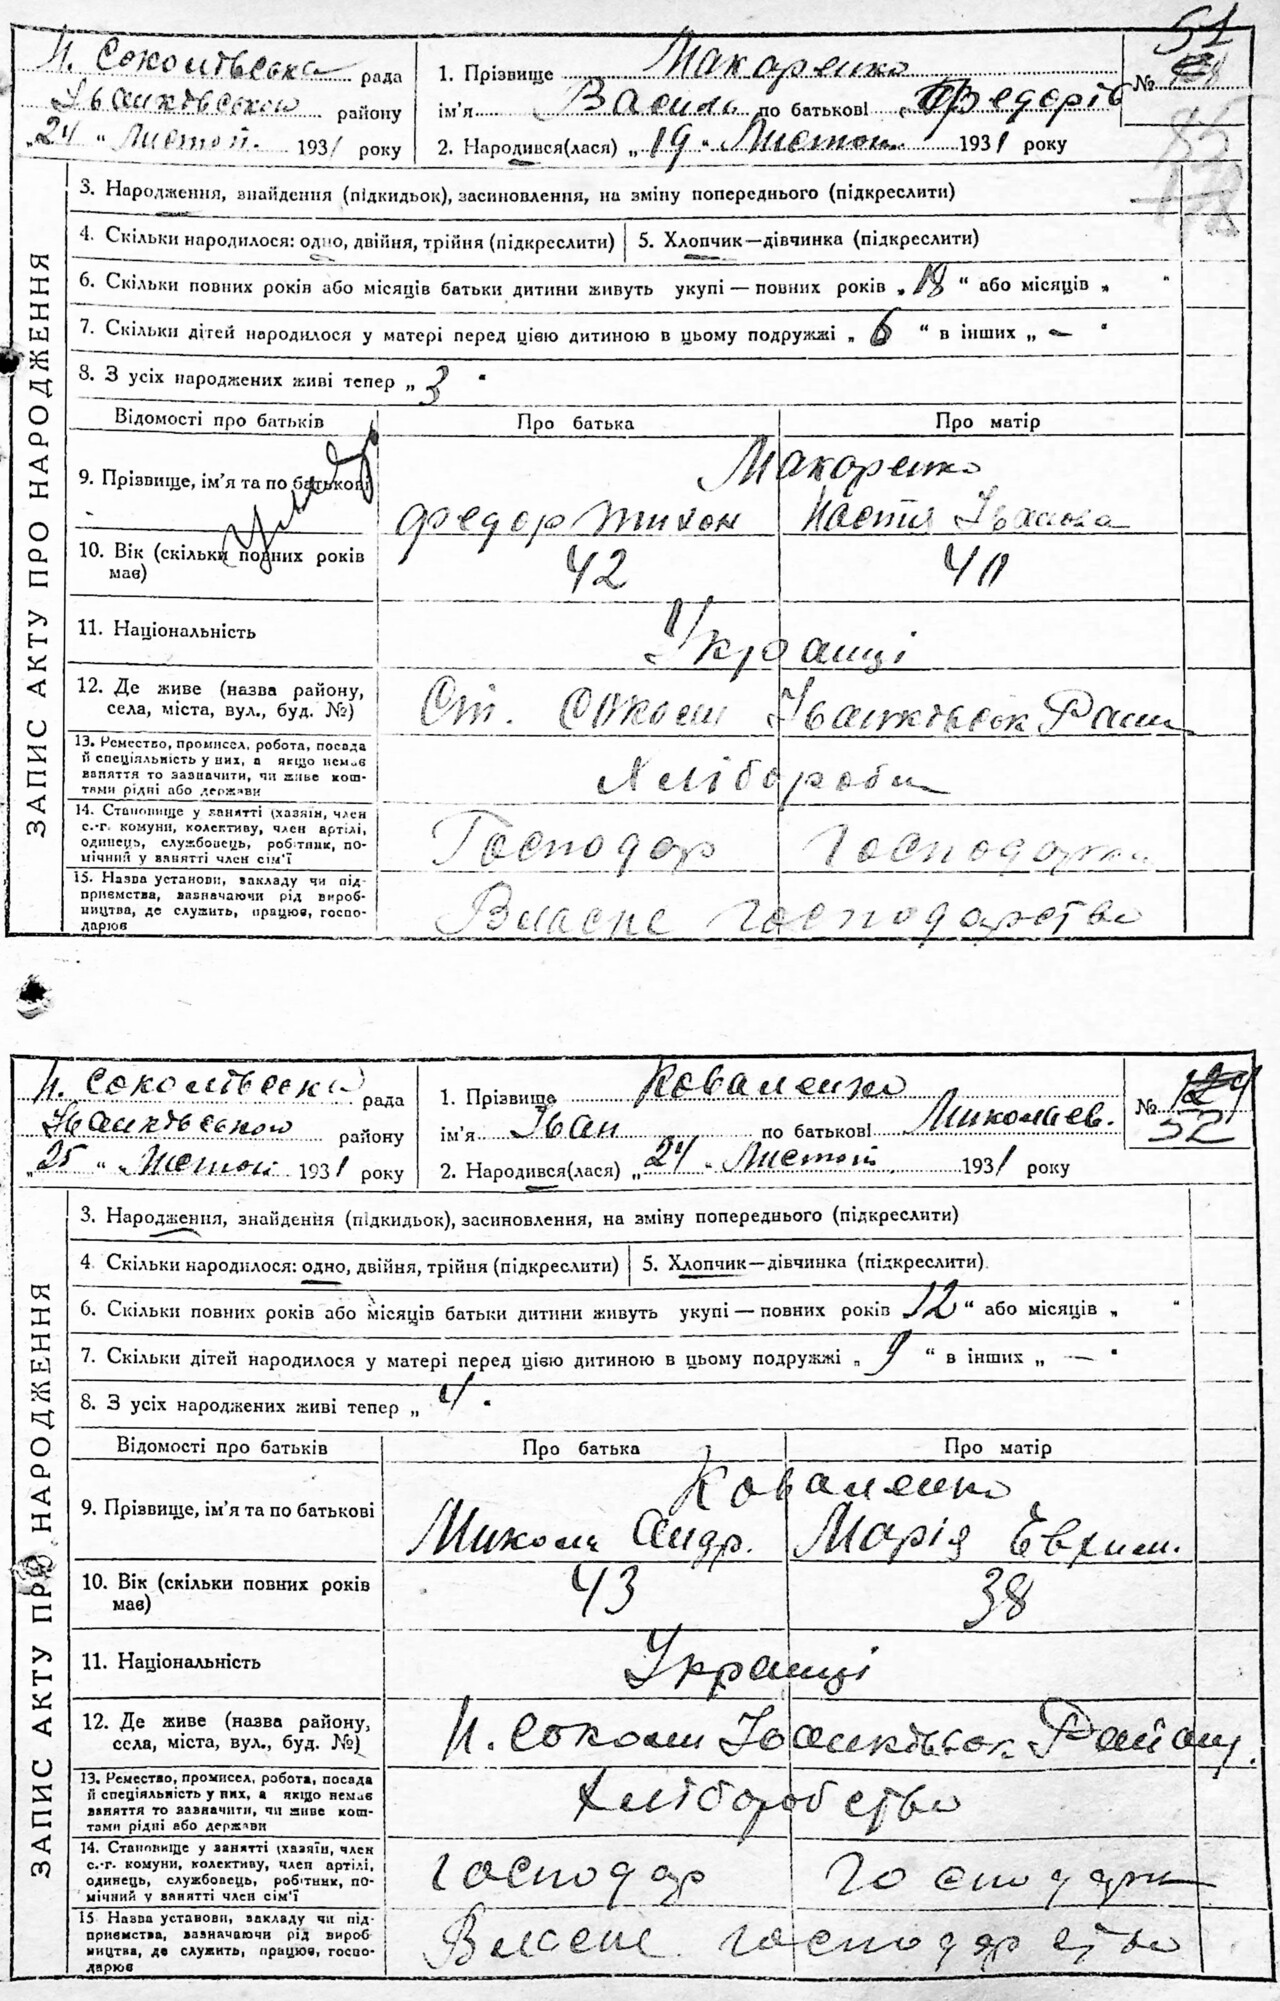 51
Н. Соколівська рада
Іванківського району
„24 “ Листоп. 1931 року
1. Прізвище Макаренко
ім'я Василь по батькові Федорів
2. Народився(лася) „19 “ Листоп. 1931 року
№
ЗАПИС АКТУ ПРО НАРОДЖЕННЯ
3. Народження, знайдення (підкидьок), засиновлення, на зміну попереднього (підкреслити)
4. Скільки народилося: одно, двійня, трійня (підкреслити) 5. Хлопчик—дівчинка (підкреслити)
6. Скільки повних років або місяців батьки дитини живуть укупі — повних років „ 18 “ або місяців „ “
7. Скільки дітей народилося у матері перед цією дитиною в цьому подружжі „ 6 “ в інших „ — “
8. З усіх народжених живі тепер „ 3 “
Відомості про батьків Про батька Про матір
9. Прізвище, ім'я та по батькові
Макаренко
Федор Тихон Настя Іванова
10. Вік (скільки повних років має) 42 40
11. Національність Українці
12. Де живе (назва району, села, міста, вул., буд. №)
Ст. Соколи Іванківськ Раш
13. Ремество, промисел, робота, посада
й спеціяльність у них, а якщо немає
заняття то зазначити, чи живе кош-
тами рідні або держави
Хлібороби
14. Становище у занятті (хазяїн, член
с.-г. комуни, колективу, член артілі,
одинець, службовець, робітник, по-
мічний у занятті член сім'ї
Господар Господарка
15. Назва установи, закладу чи під-
приємства, зазначаючи рід вироб-
ництва, де служить, працює, госпо-
дарює
Власне господарство
Н. Соколівська рада
Іванківського району
„25 “ Листоп 1931 року
1. Прізвище Коваленко
ім'я Іван по батькові Миколаєв.
2. Народився(лася) „24 “ Листоп. 1931 року
№ 124
52
ЗАПИС АКТУ ПРО НАРОДЖЕННЯ
3. Народження, знайдення (підкидьок), засиновлення, на зміну попереднього (підкреслити)
4. Скільки народилося: одно, двійня, трійня (підкреслити) 5. Хлопчик—дівчинка (підкреслити)
6. Скільки повних років або місяців батьки дитини живуть укупі — повних років 12 “ або місяців „ “
7. Скільки дітей народилося у матері перед цією дитиною в цьому подружжі „ 9 “ в інших „ — “
8. З усіх народжених живі тепер „ 4 “
Відомості про батьків Про батька Про матір
9. Прізвище, ім'я та по батькові
Коваленко
Микола Андр. Марія Евхим.
10. Вік (скільки повних років має) 43 38
11. Національність Українці
12. Де живе (назва району, села, міста, вул., буд. №)
Н. Соколи Іванківськ Району.
13. Ремество, промисел, робота, посада
й спеціяльність у них, а якщо немає
заняття то зазначити, чи живе кош-
тами рідні або держави
Хліборобство
14. Становище у занятті (хазяїн, член
с.-г. комуни, колективу, член артілі,
одинець, службовець, робітник, по-
мічний у занятті член сім'ї
Господар Господарка
15 Назва установи, закладу чи під-
приємства, зазначаючи рід вироб-
ництва, де служить, працює, госпо-
дарює
Власне господарство